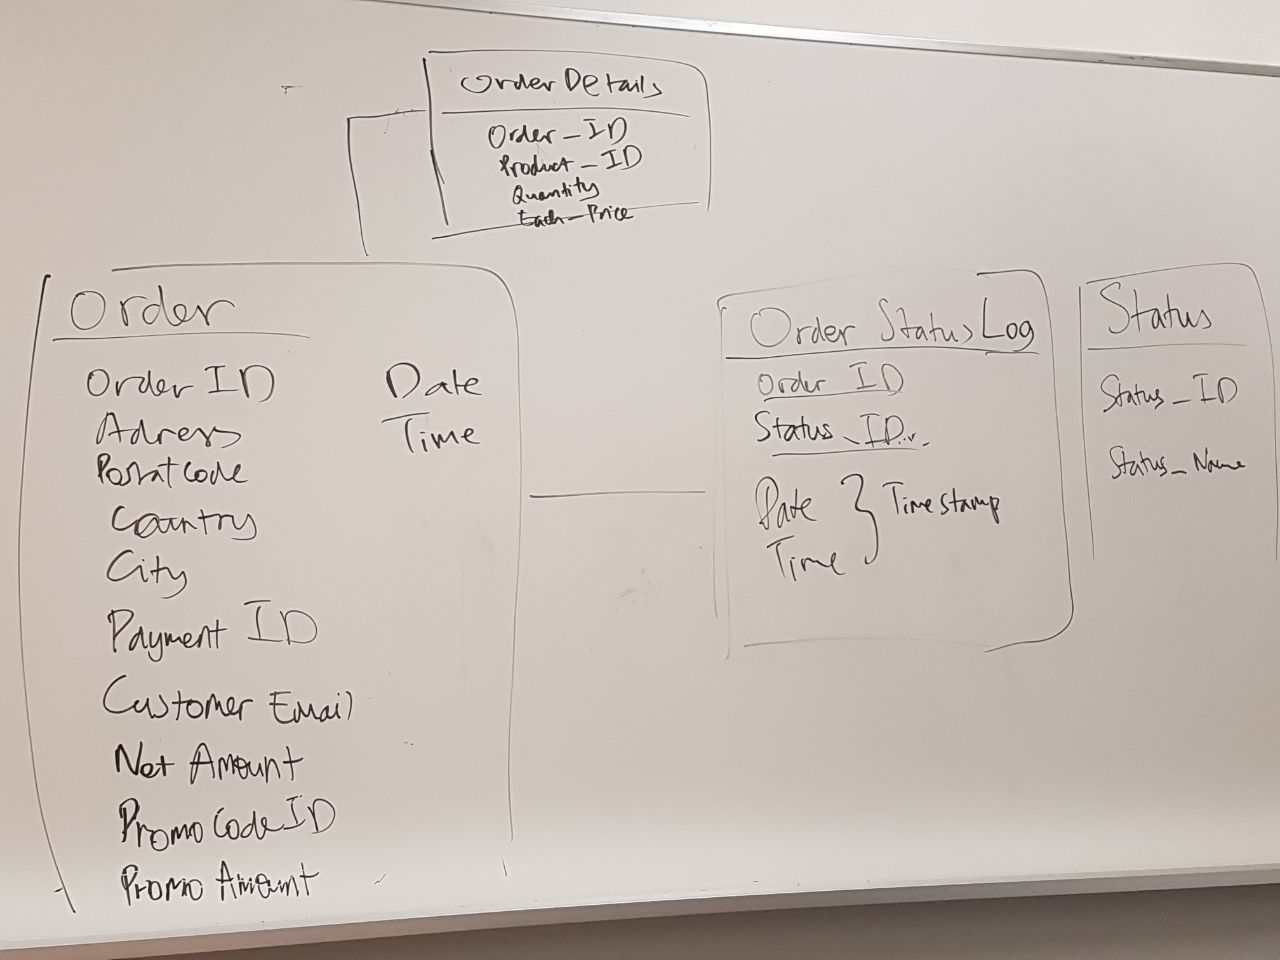 Order Details
Order_ID
Product_ID
Quantity
Each_Price
Order
Order ID
Adress
Postal Code
Country
City
Payment ID
Customer Email
Net Amount
Promo Code ID
Promo Amount
Date
Time
Order Status Log
Order ID
Status_ID
Date } Timestamp
Time
Status
Status_ID
Status_Name